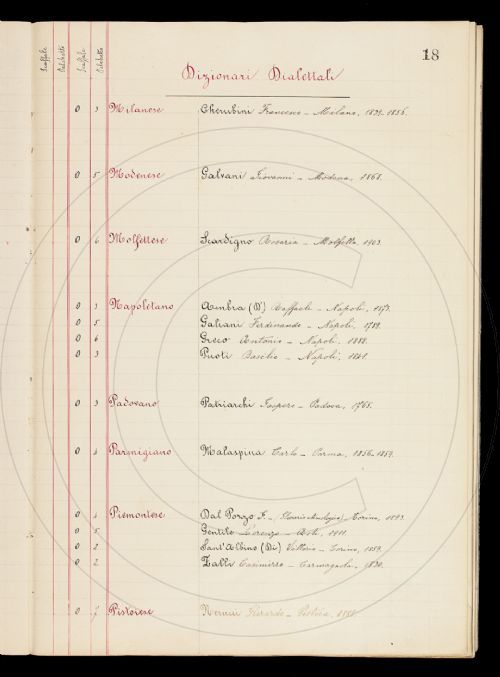 18
Scaffale
Palchetto
Scaffale
Palchetto
Dizionari Dialettali
0 3 Milanese Cherubini Francesco - Milano, 1839-1856.
0 5 Modenese Galvani Giovanni - Modena, 1868.
0 6 Molfettese Scardigno Rosaria - Molfetta 1903.
0 3 Napoletano Ambra (D') Raffaele - Napoli, 1873.
0 5 Galiani Ferdinando - Napoli, 1789.
0 6 Greco Antonio - Napoli, 1882.
0 3 Puoti Basilio - Napoli, 1841.
0 3 Padovano Patriarchi Gaspero - Padova, 1765.
0 Parmigiano Malaspina Carlo - Parma, 1856-1859.
0 Piemontese Dal Pozzo F. - Torino, 1893.
0 5 Gentile Lorenzo - Asti, 1911.
0 2 Sant'Albino (Di) Vittorio - Torino, 1859.
0 2 Zalli Casimirro - Carmagnola, 1830.
0 7 Pistoiese Nerucci Gherardo - Pistoia,